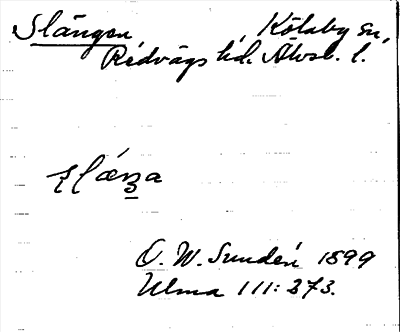 Slängen, Kölaby sn,
Redvägs hd. Älvsb. l.
Slæŋa
O. W. Sundén 1899
Ulma 111:373.